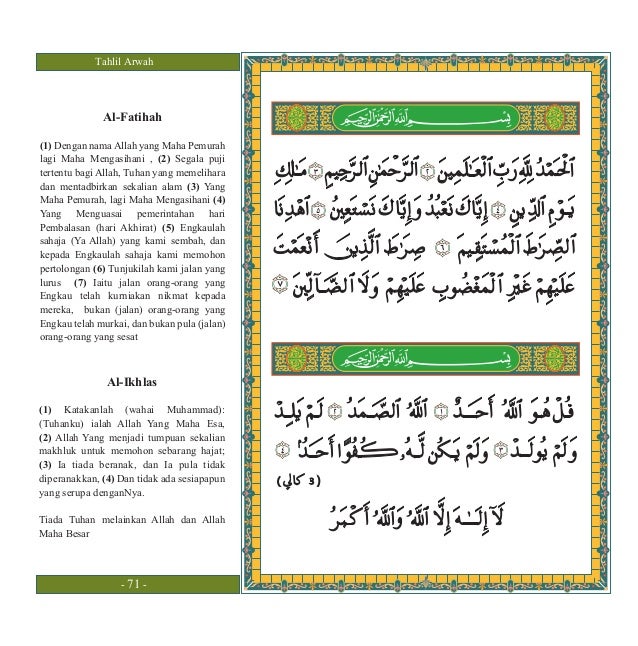 Tahlil Arwah
Al-Fatihah
(1) Dengan nama Allah yang Maha Pemurah
lagi Maha Mengasihani , (2) Segala puji
tertentu bagi Allah, Tuhan yang memelihara
dan mentadbirkan sekalian alam (3) Yang
Maha Pemurah, lagi Maha Mengasihani (4)
Yang Menguasai pemerintahan hari
Pembalasan (hari Akhirat) (5) Engkaulah
sahaja (Ya Allah) yang kami sembah, dan
kepada Engkaulah sahaja kami memohon
pertolongan (6) Tunjukilah kami jalan yang
lurus (7) Iaitu jalan orang-orang yang
Engkau telah kurniakan nikmat kepada
mereka, bukan (jalan) orang-orang yang
Engkau telah murkai, dan bukan pula (jalan)
orang-orang yang sesat
Al-Ikhlas
(1) Katakanlah (wahai Muhammad):
(Tuhanku) ialah Allah Yang Maha Esa,
(2) Allah Yang menjadi tumpuan sekalian
makhluk untuk memohon sebarang hajat;
(3) Ia tiada beranak, dan Ia pula tidak
diperanakkan, (4) Dan tidak ada sesiapapun
yang serupa denganNya.
Tiada Tuhan melainkan Allah dan Allah
Maha Besar
- 71 -
بِسْمِ ٱللَّهِ ٱلرَّحْمَٰنِ ٱلرَّحِيمِ
ٱلْحَمْدُ لِلَّهِ رَبِّ ٱلْعَٰلَمِينَ ٢ ٱلرَّحْمَٰنِ ٱلرَّحِيمِ ٣ مَٰلِكِ
يَوْمِ ٱلدِّينِ ٤ إِيَّاكَ نَعْبُدُ وَإِيَّاكَ نَسْتَعِينُ ٥ ٱهْدِنَا
ٱلصِّرَٰطَ ٱلْمُسْتَقِيمَ ٦ صِرَٰطَ ٱلَّذِينَ أَنْعَمْتَ
عَلَيْهِمْ غَيْرِ ٱلْمَغْضُوبِ عَلَيْهِمْ وَلَا ٱلضَّآلِّينَ ٧
بِسْمِ ٱللَّهِ ٱلرَّحْمَٰنِ ٱلرَّحِيمِ
قُلْ هُوَ ٱللَّهُ أَحَدٌ ١ ٱللَّهُ ٱلصَّمَدُ ٢ لَمْ يَلِدْ
وَلَمْ يُولَدْ ٣ وَلَمْ يَكُن لَّهُۥ كُفُوًا أَحَدٌۢ ٤
(3 كالي)
لَآ إِلَٰهَ إِلَّا ٱللَّهُ وَٱللَّهُ أَكْبَرُ